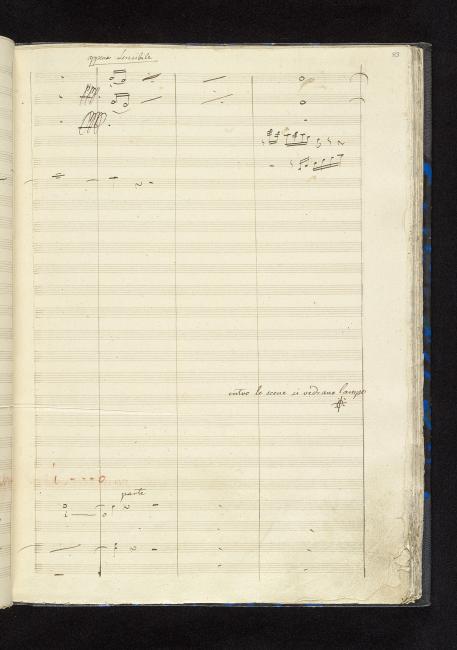 93
appena sensibile
entro le scene si vedrano lampi
parte